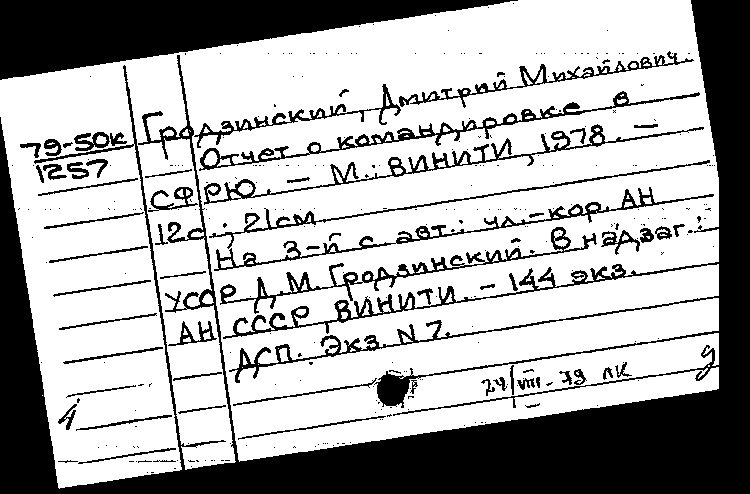 79-50к
1257
Гродзинский, Дмитрий Михайлович.
Отчет о командировке в
СФРЮ. – М.: ВИНИТИ, 1978. –
12с.; 21см.
На 3-й с. авт.: чл.-кор. АН
УССР Д.М. Гродзинский. В надзаг.:
АН СССР, ВИНИТИ. – 144 экз.
ДСП. Экз. N 7.
24/VIII-79 ЛК